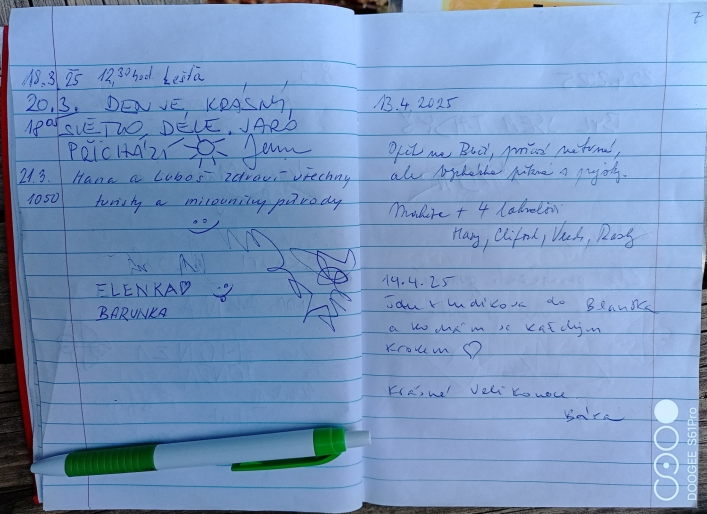 18.3. 25 12,30 hod Lešťa
20.3. DEN JE KRÁSNÝ,
18 05 SVĚTLO DÉLE. JARO
PŘICHÁZÍ
21.3. Hana a Luboš zdraví všechny
1050 turisty a milovníky přírody
ELENKA♡
BARUNKA
7
13.4.2025
Opět na Buči, počasí
ale vycházka pěkná s pejsky.
+ 4 labradoři
19.4.25
Jdu z do Blanska
a kochám se každým
krokem ♡
Krásné Velikonoce
Bára
DOOGEE S61Pro